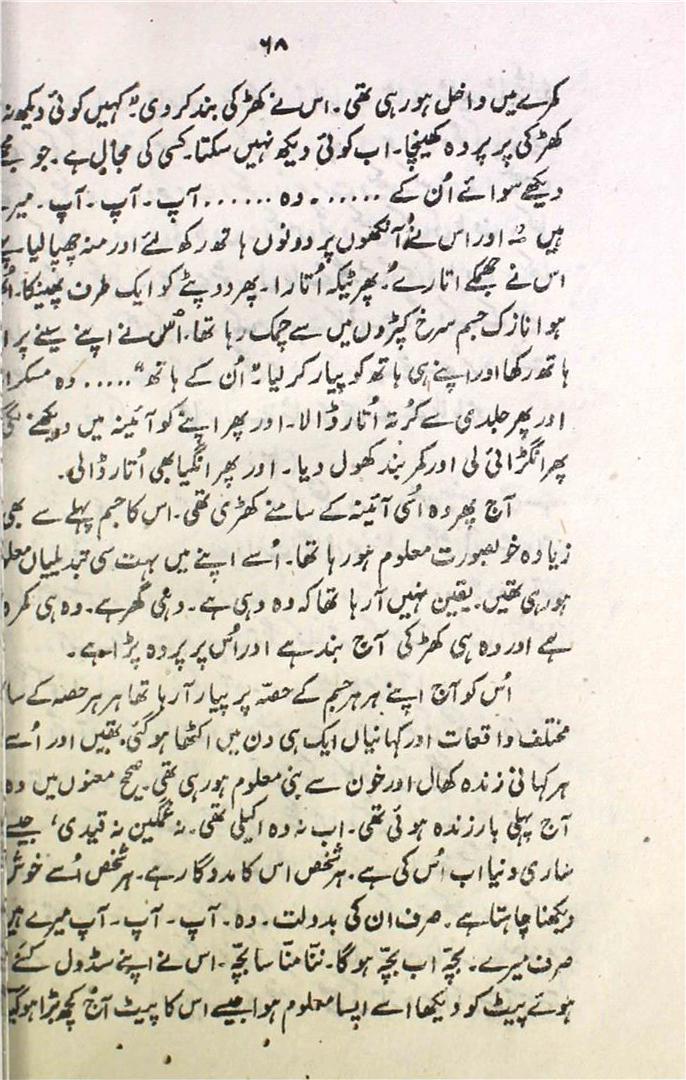 ۶۸
کمرے میں داخل ہو رہی تھی۔ اس نے کھڑکی بند کر دی۔ "کہیں کوئی دیکھ نہ
کھڑکی پر پردہ کھینچا۔ اب کوئی دیکھ نہیں سکتا۔ کسی کی مجال ہے۔ جو مجھے
دیکھے سوائے اُن کے ...... وہ ...... آپ۔ آپ۔ آپ۔ میرے
ہیں" اور اس نے آنکھوں پر دونوں ہاتھ رکھ لئے اور منہ چھپا لیا
اس نے جھمکے اتارے۔ پھر ٹیکہ اُتارا۔ پھر دوپٹے کو ایک طرف پھینکا۔
ہوا نازک جسم سرخ کپڑوں میں سے چمک رہا تھا۔ اُس نے اپنے سینے پر
ہاتھ رکھا اور اپنے ہی ہاتھ کو پیار کر لیا۔ "اُن کے ہاتھ" ..... وہ مسکرا
اور پھر جلدی سے کُرتہ اُتار ڈالا۔ اور پھر اپنے کو آئینہ میں دیکھنے لگی
پھر انگڑائی لی اور کمر بند کھول دیا۔ اور پھر انگیا بھی اُتار ڈالی۔
آج پھر وہ اُسی آئینہ کے سامنے کھڑی تھی۔ اس کا جسم پہلے سے بھی
زیادہ خوبصورت معلوم ہو رہا تھا۔ اُسے اپنے میں بہت سی تبدیلیاں معلوم
ہو رہی تھیں۔ یقین نہیں آرہا تھا کہ وہ وہی ہے۔ وہی گھر ہے۔ وہ ہی کمرہ
ہے اور وہ ہی کھڑکی آج بند ہے اور اُس پر پردہ پڑا ہے۔
اُس کو آج اپنے ہر ہر جسم کے حصّہ پر پیار آ رہا تھا ہر ہر حصہ کے ساتھ
مختلف واقعات اور کہانیاں ایک ہی دن میں اکٹھا ہو گئی تھیں اور اُسے
ہر کہانی زندہ کھال اور خون سے بنی معلوم ہو رہی تھی۔ صحیح معنوں میں وہ
آج پہلی بار زندہ ہوئی تھی۔ اب نہ وہ اکیلی تھی۔ نہ غمگین نہ قیدی، جیسے
ساری دنیا اب اُس کی ہے۔ ہر شخص اس کا مددگار ہے۔ ہر شخص اُسے خوش
دیکھنا چاہتا ہے۔ صرف ان کی بدولت۔ وہ۔ آپ۔ آپ۔ آپ میرے ہیں
صرف میرے۔ بچّہ اب بچّہ ہوگا۔ ننّا منّا سا بچّہ۔ اس نے اپنے سڈول کسے
ہوئے پیٹ کو دیکھا اسے ایسا معلوم ہوا جیسے اس کا پیٹ آج کچھ بڑا ہو گیا